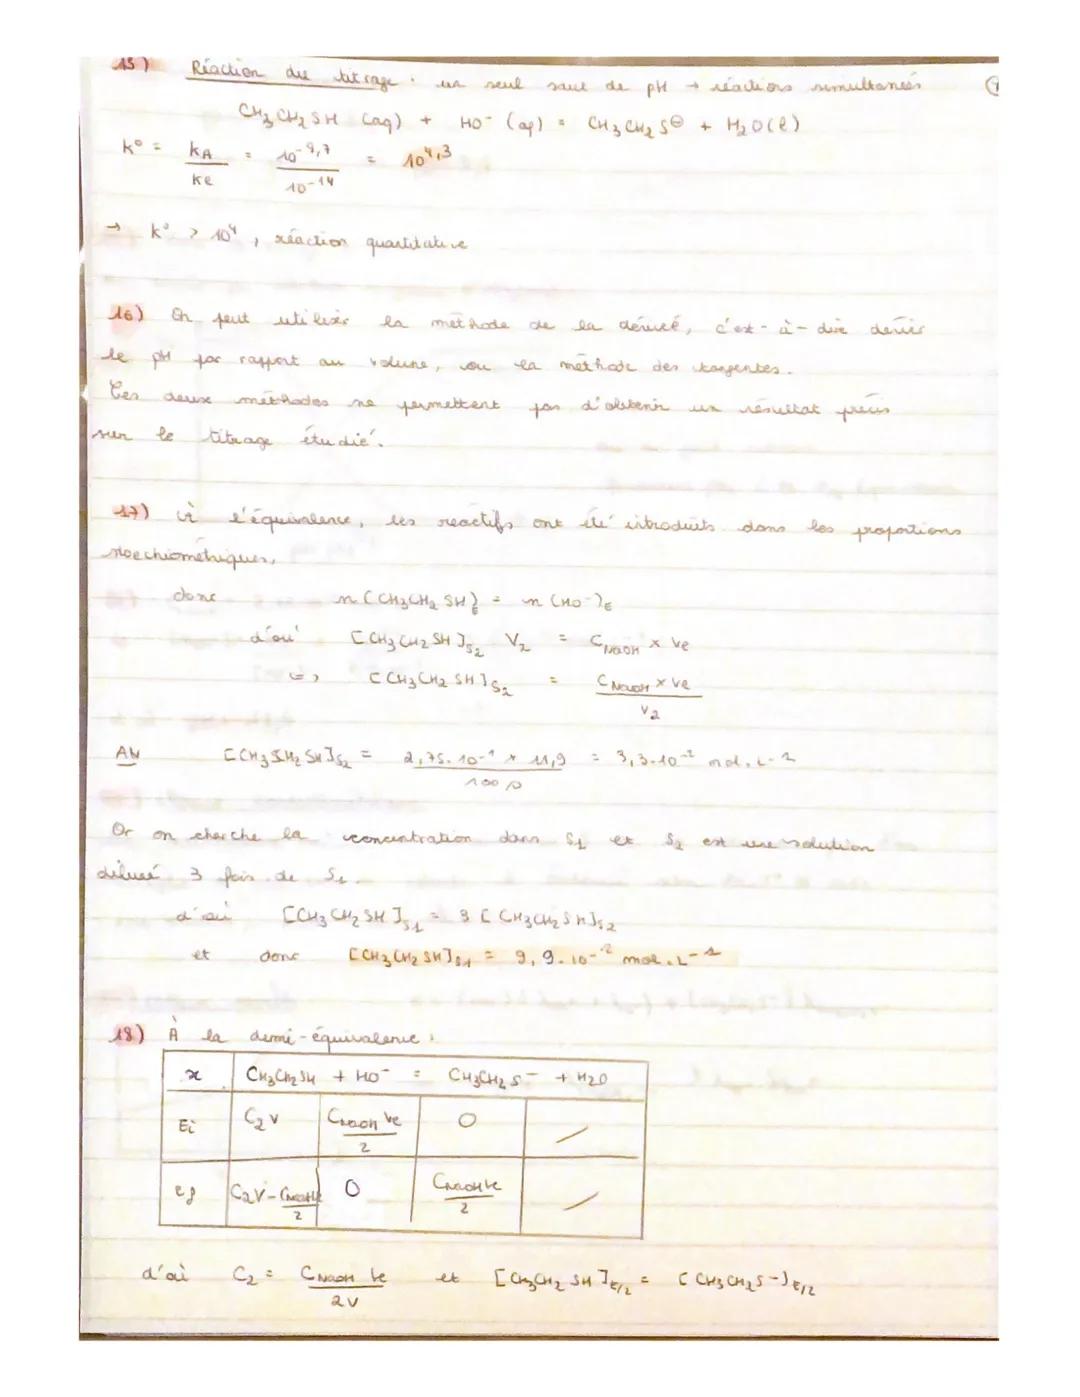 15) Réaction du titrage : un seul saut de pH → réactions simultanées
CH3CH2SH (aq) + HO- (aq) = CH3CH2S⊖ + H2O(l)
K° = KA / Ke = 10^-9,7 / 10^-14 = 10^4,3
→ K° > 10^4, réaction quantitative
16) On peut utiliser la méthode de la dérivée, c'est-à-dire dériver
le pH par rapport au volume, ou la méthode des tangentes.
Ces deux méthodes ne permettent pas d'obtenir un résultat précis
sur le titrage étudié.
17) à l'équivalence, les réactifs ont été introduits dans les proportions
stoechiométriques,
donc n(CH3CH2SH)E = n(HO-)E
d'où [CH3CH2SH]S2 V2 = CNaOH x Ve
[CH3CH2SH]S2 = CNaOH x Ve / V2
AN [CH3CH2SH]S2 = 2,75.10^-1 x 11,9 / 100,0 = 3,3.10^-2 mol.L-1
Or on cherche la concentration dans S1 et S2 est une solution
diluée 3 fois de S1.
d'où [CH3CH2SH]S1 = 3 [CH3CH2SH]S2
et donc [CH3CH2SH]S1 = 9,9.10^-2 mol.L-1
18) À la demi-équivalence :
x CH3CH2SH + HO- = CH3CH2S- + H2O
Ei C2V CNaOH Ve / 2 0 /
ef C2V - CNaOHVe / 2 0 CNaOHVe / 2 /
d'où C2 = CNaOH Ve / 2V et [CH3CH2SH]E/2 = [CH3CH2S-]E/2